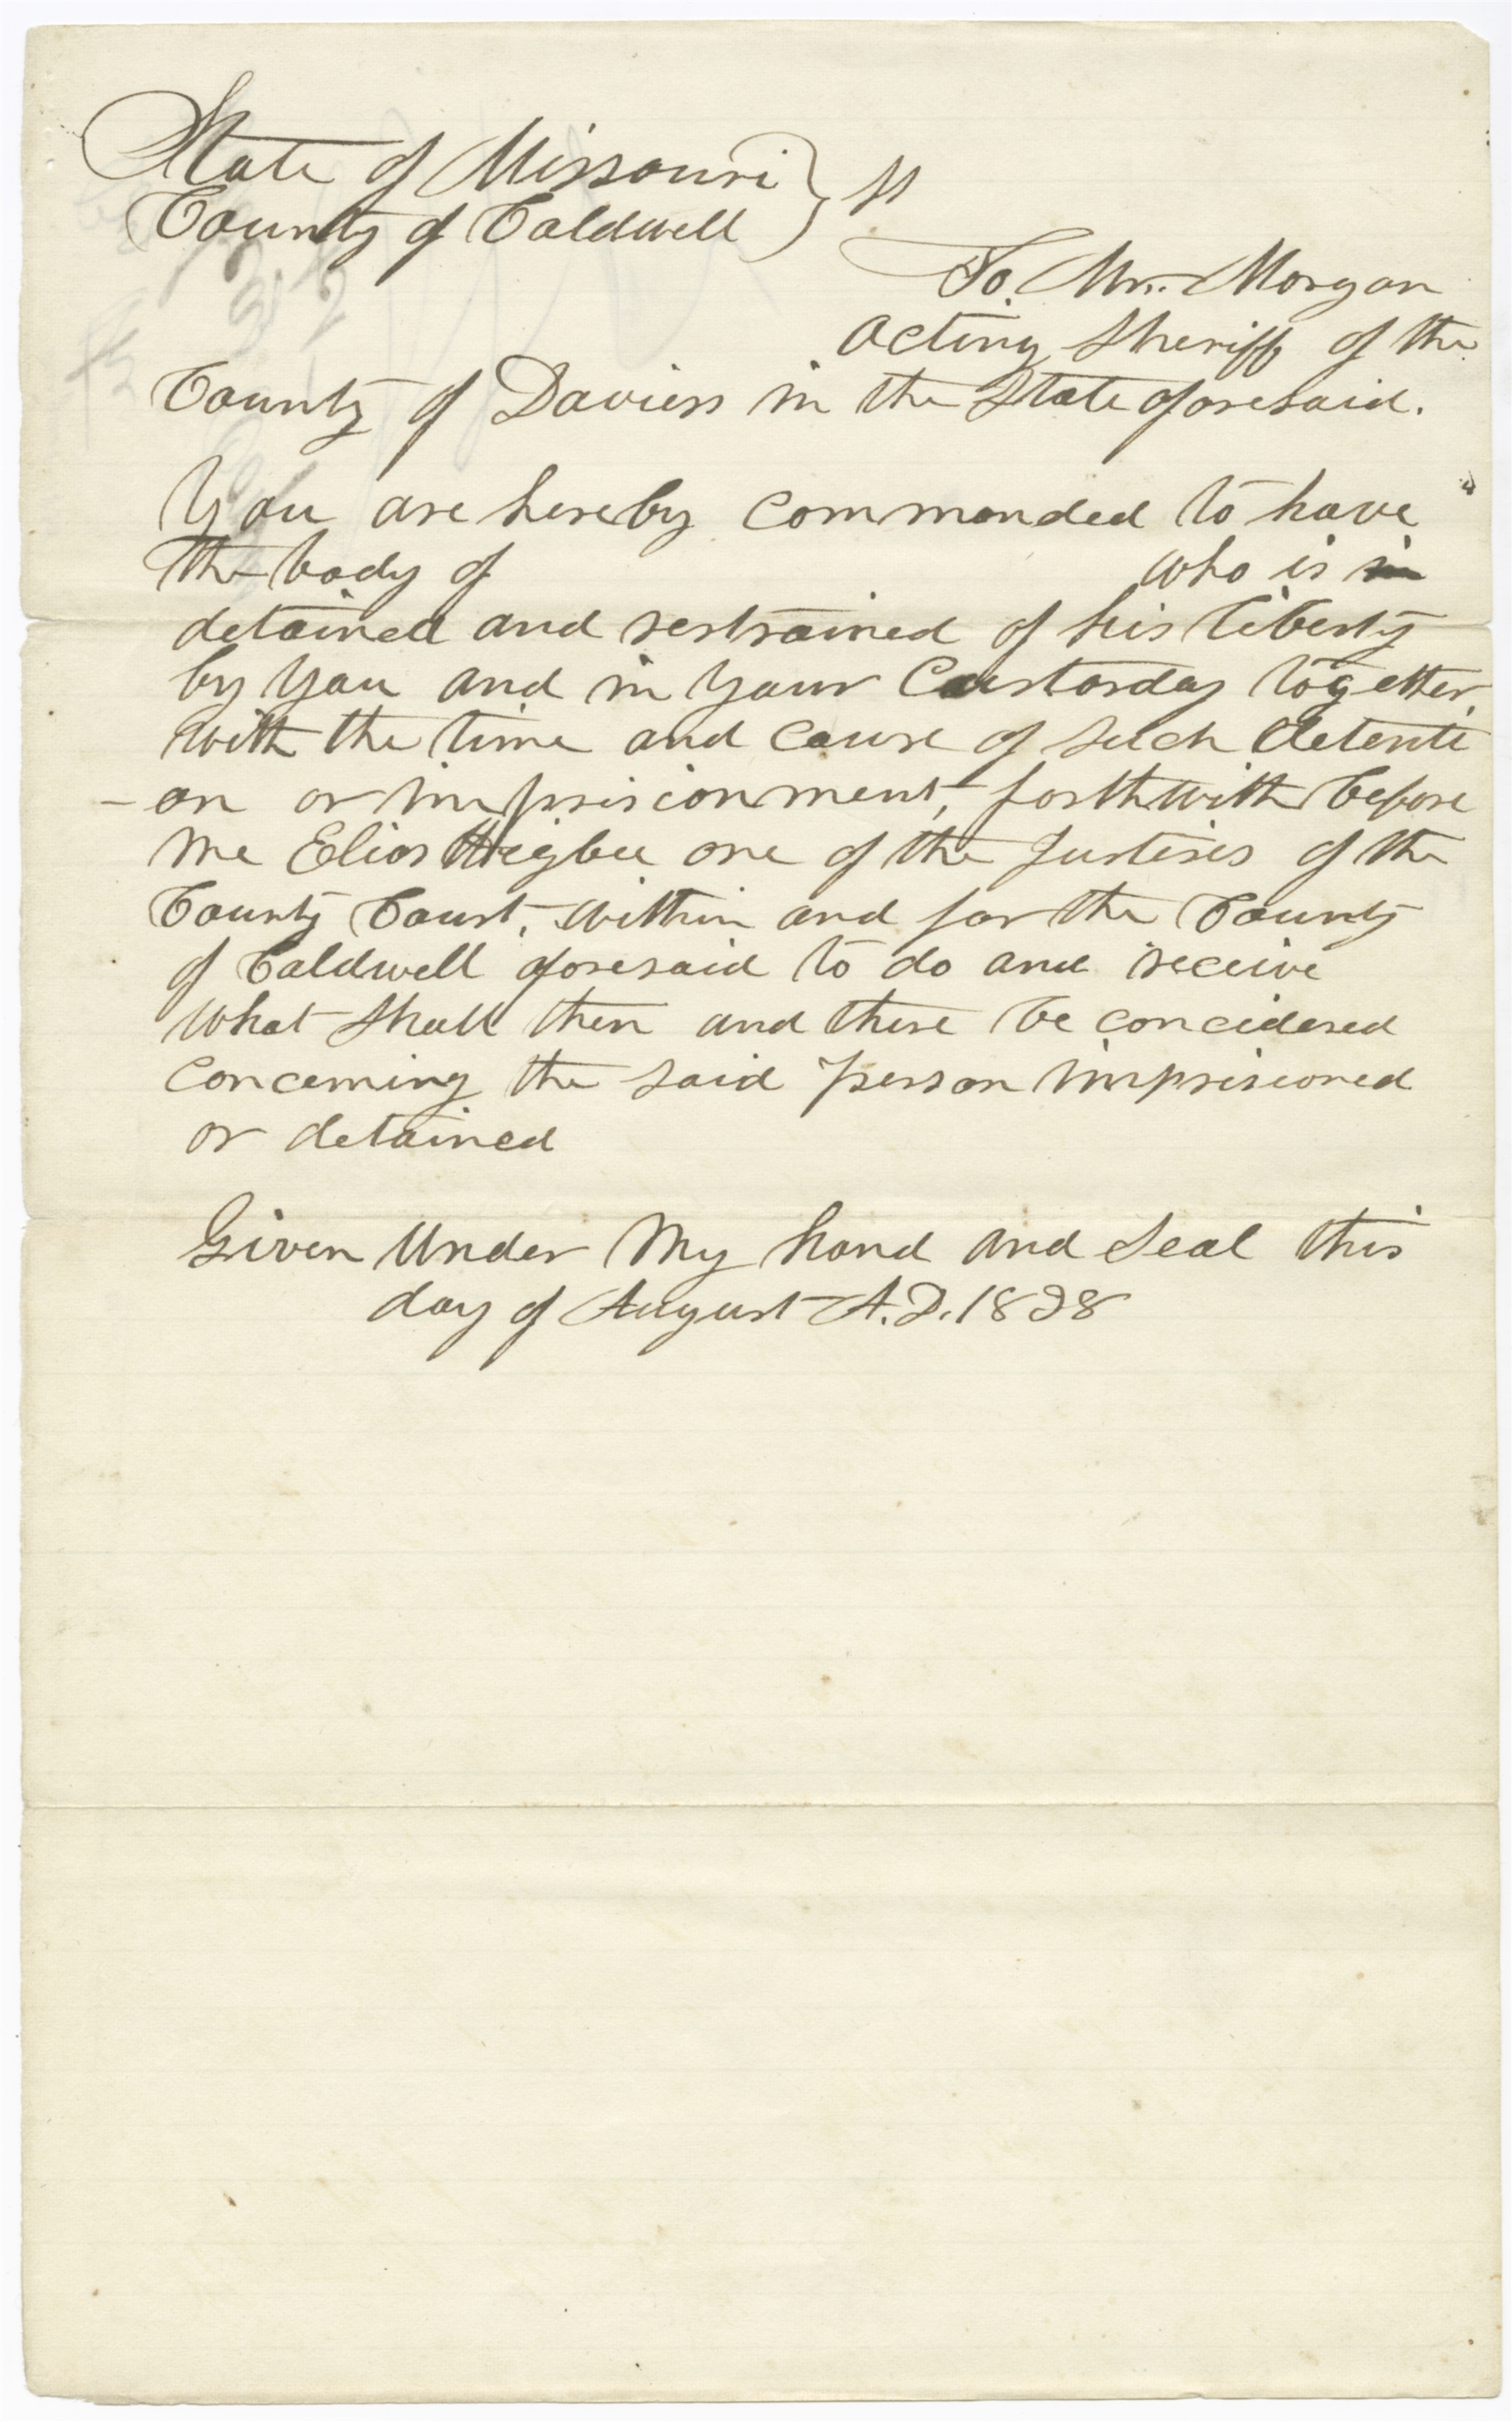 State of Missouri } ss
County of Caldwell }
To. Mr. Morgan
acting Sheriff of the
County of Daviess in the State aforesaid.
You are hereby commanded to have
the body of who is in
detained and restrained of his liberty
by you and in your Custorday together,
with the time and cause of such detenti
-on or imprisionment, forthwith before
me Elias Higbee one of the Justises of the
County Court, within and for the County
of Caldwell aforesaid to do and receive
what shall then and there be concidered
concerning the said person imprisioned
or detained
Given under my hand and seal this
day of August A.D. 1838